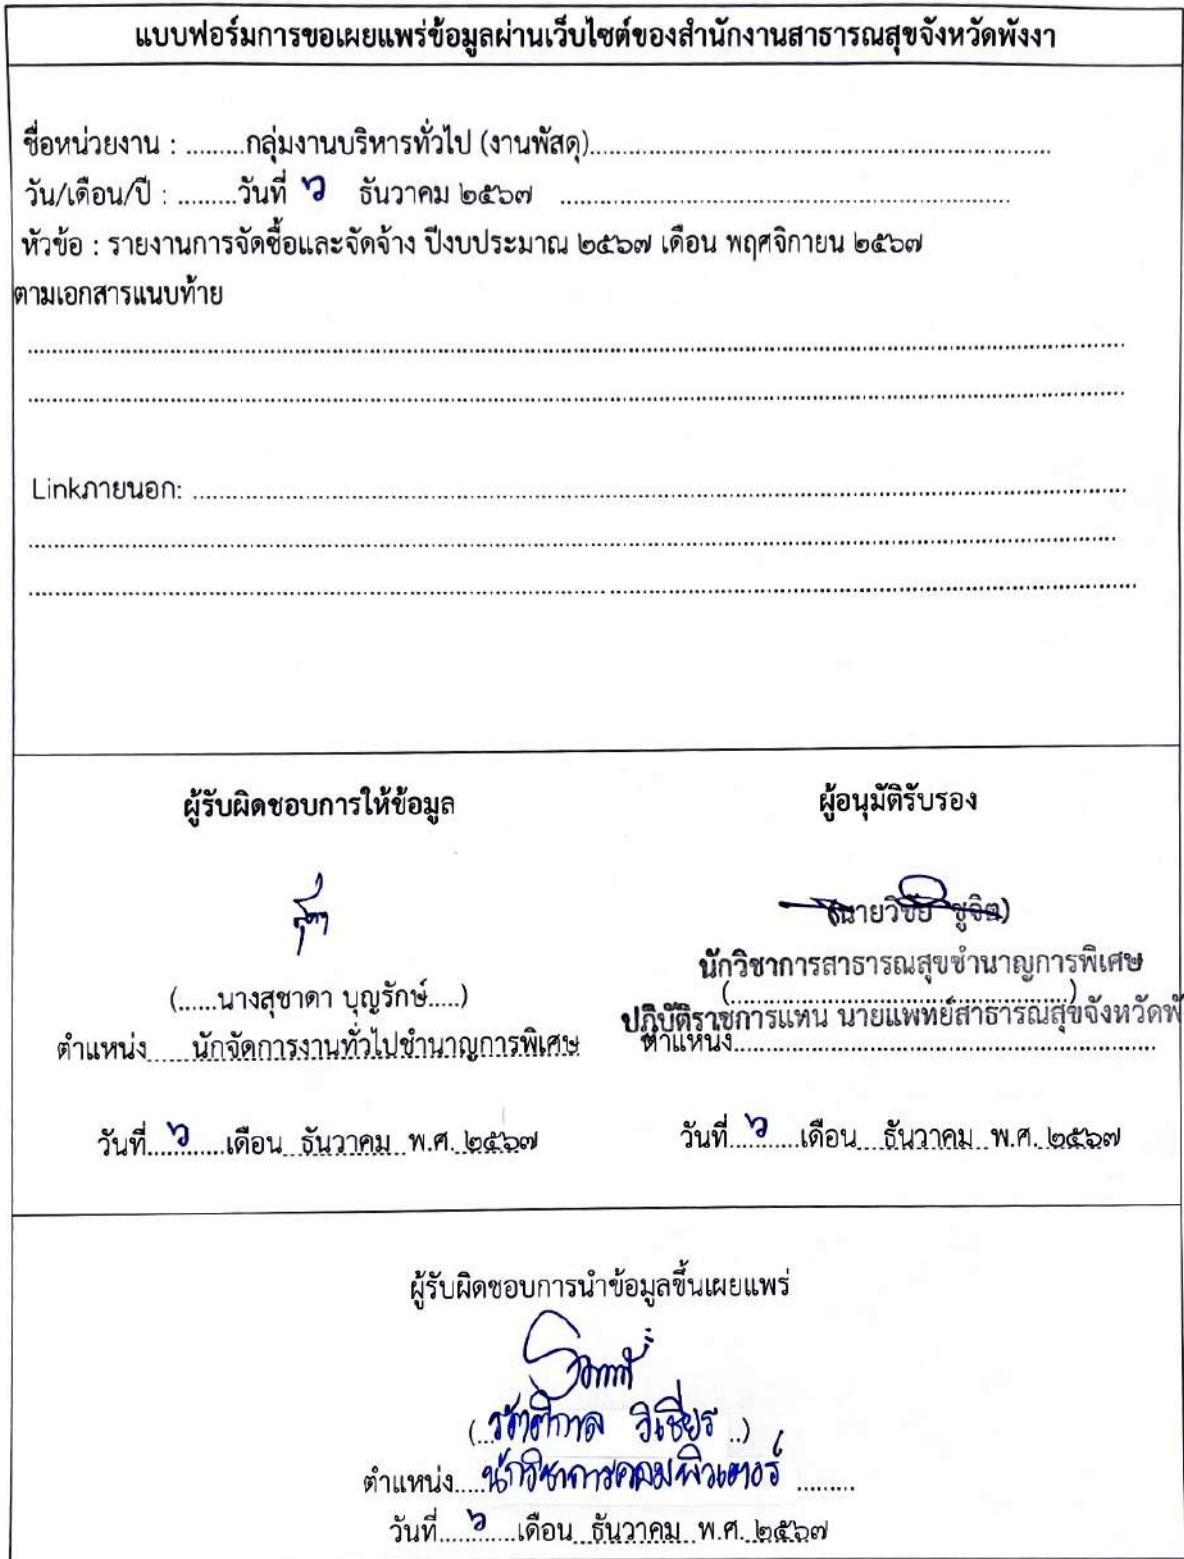 แบบฟอร์มการขอเผยแพร่ข้อมูลผ่านเว็บไซต์ของสำนักงานสาธารณสุขจังหวัดพังงา
ชื่อหน่วยงาน : .........กลุ่มงานบริหารทั่วไป (งานพัสดุ)..............................................................................
วัน/เดือน/ปี : .........วันที่ ๖ ธันวาคม ๒๕๖๗ ...........................................................................
หัวข้อ : รายงานการจัดซื้อและจัดจ้าง ปีงบประมาณ ๒๕๖๗ เดือน พฤศจิกายน ๒๕๖๗
ตามเอกสารแนบท้าย
Linkภายนอก: ..............................................................................
ผู้รับผิดชอบการให้ข้อมูล
(......นางสุชาดา บุญรักษ์.....)
ตำแหน่ง......นักจัดการงานทั่วไปชำนาญการพิเศษ
วันที่....๖......เดือน...ธันวาคม...พ.ศ. ๒๕๖๗
ผู้อนุมัติรับรอง
(นายวิชัย ชูจิต)
นักวิชาการสาธารณสุขชำนาญการพิเศษ
(..........................................................)
ปฏิบัติราชการแทน นายแพทย์สาธารณสุขจังหวัดพั
ตำแหน่ง......................................................................
วันที่....๖......เดือน....ธันวาคม...พ.ศ. ๒๕๖๗
ผู้รับผิดชอบการนำข้อมูลขึ้นเผยแพร่
(... วิเชียร ..)
ตำแหน่ง.....นักวิชาการคอมพิวเตอร์ .........
วันที่....๖......เดือน...ธันวาคม...พ.ศ. ๒๕๖๗